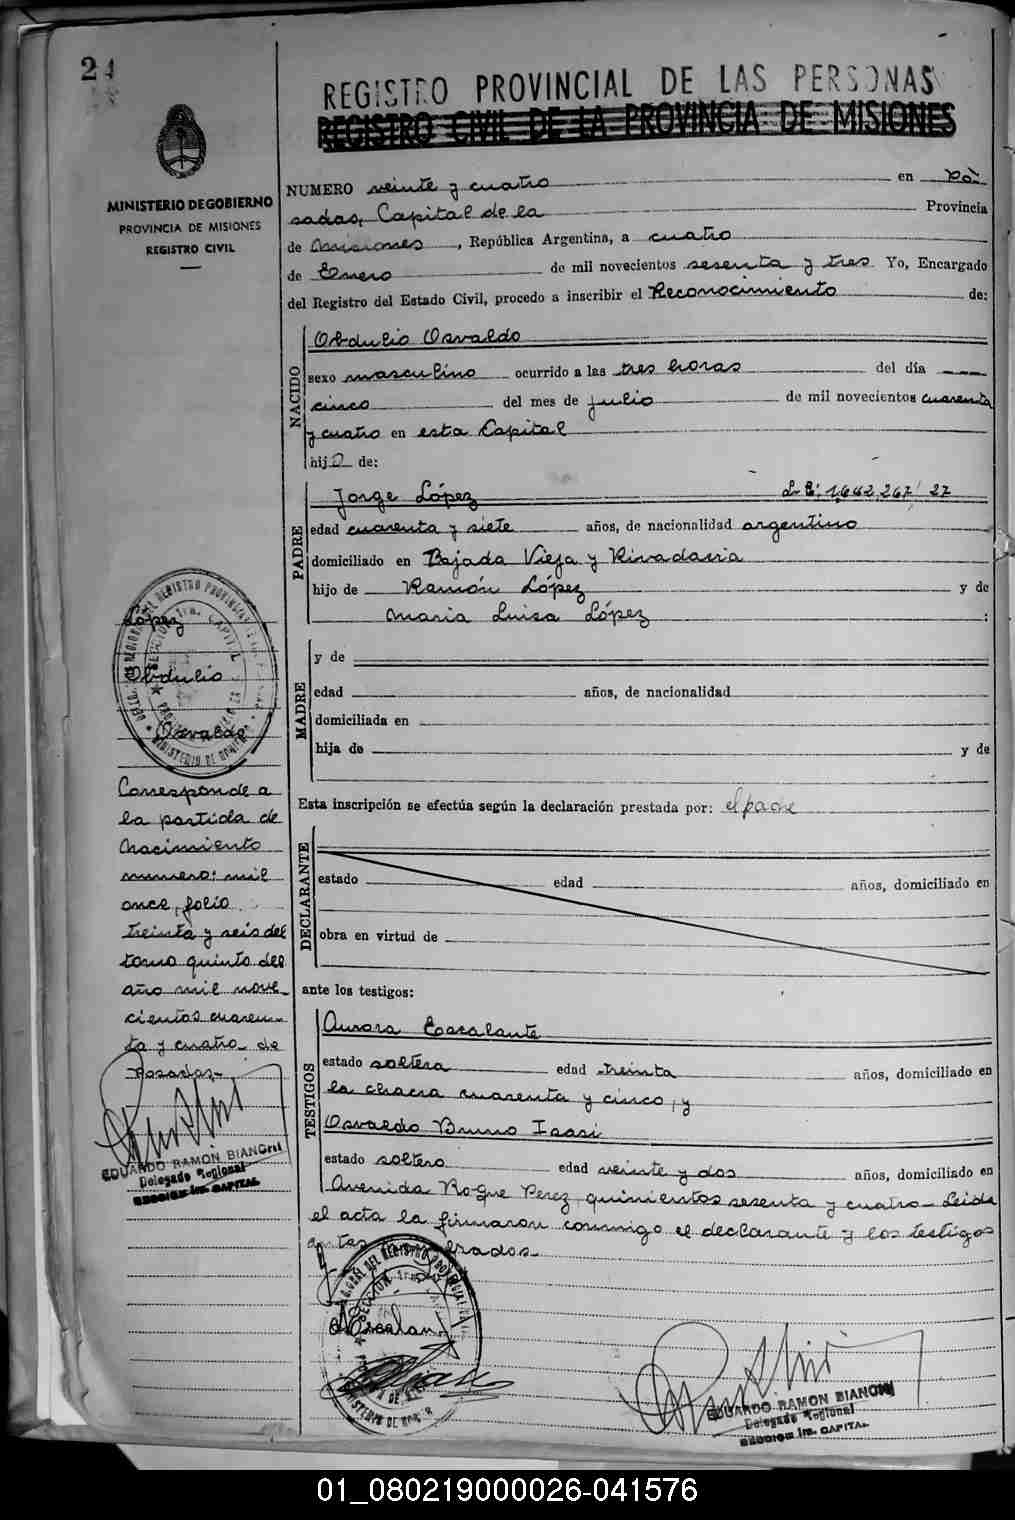 24
MINISTERIO DE GOBIERNO
PROVINCIA DE MISIONES
REGISTRO CIVIL
REGISTRO PROVINCIAL DE LAS PERSONAS
REGISTRO CIVIL DE LA PROVINCIA DE MISIONES
NUMERO veinte y cuatro en Po-
sadas, Capital de la Provincia
de Misiones, República Argentina, a cuatro
de Enero de mil novecientos sesenta y tres Yo, Encargado
del Registro del Estado Civil, procedo a inscribir el Reconocimiento de:
NACIDO
Obdulio Osvaldo
sexo masculino ocurrido a las tres horas del día
cinco del mes de julio de mil novecientos cuarenta
y cuatro en esta Capital
hijo de:
PADRE
Jorge López L.E: 1.642.267/27
edad cuarenta y siete años, de nacionalidad argentino
domiciliado en Bajada Vieja y Rivadavia
hijo de Ramón López y de
Maria Luisa López
MADRE
y de
edad años, de nacionalidad
domiciliada en
hija de y de
Esta inscripción se efectúa según la declaración prestada por: el padre
DECLARANTE
estado edad años, domiciliado en
obra en virtud de
ante los testigos:
TESTIGOS
Aurora Escalante
estado soltera edad treinta años, domiciliado en
la chacra cuarenta y cinco, y
Osvaldo Bruno Isasi
estado soltero edad veinte y dos años, domiciliado en
Avenida Roque Perez quinientos sesenta y cuatro - Leida
el acta la firmaron conmigo el declarante y los testigos
López
Obdulio
Osvaldo
Corresponde a
la partida de
Nacimiento
numero: mil
once, folio
treinta y seis del
tomo quinto del
año mil nove-
cientos cuaren-
ta y cuatro de
Posadas-
EDUARDO RAMON BIANCHI
Delegado Regional
SECCION 1ra. CAPITAL
AEscalante
EDUARDO RAMON BIANCHI
Delegado Regional
SECCION 1ra. CAPITAL
01_080219000026-041576